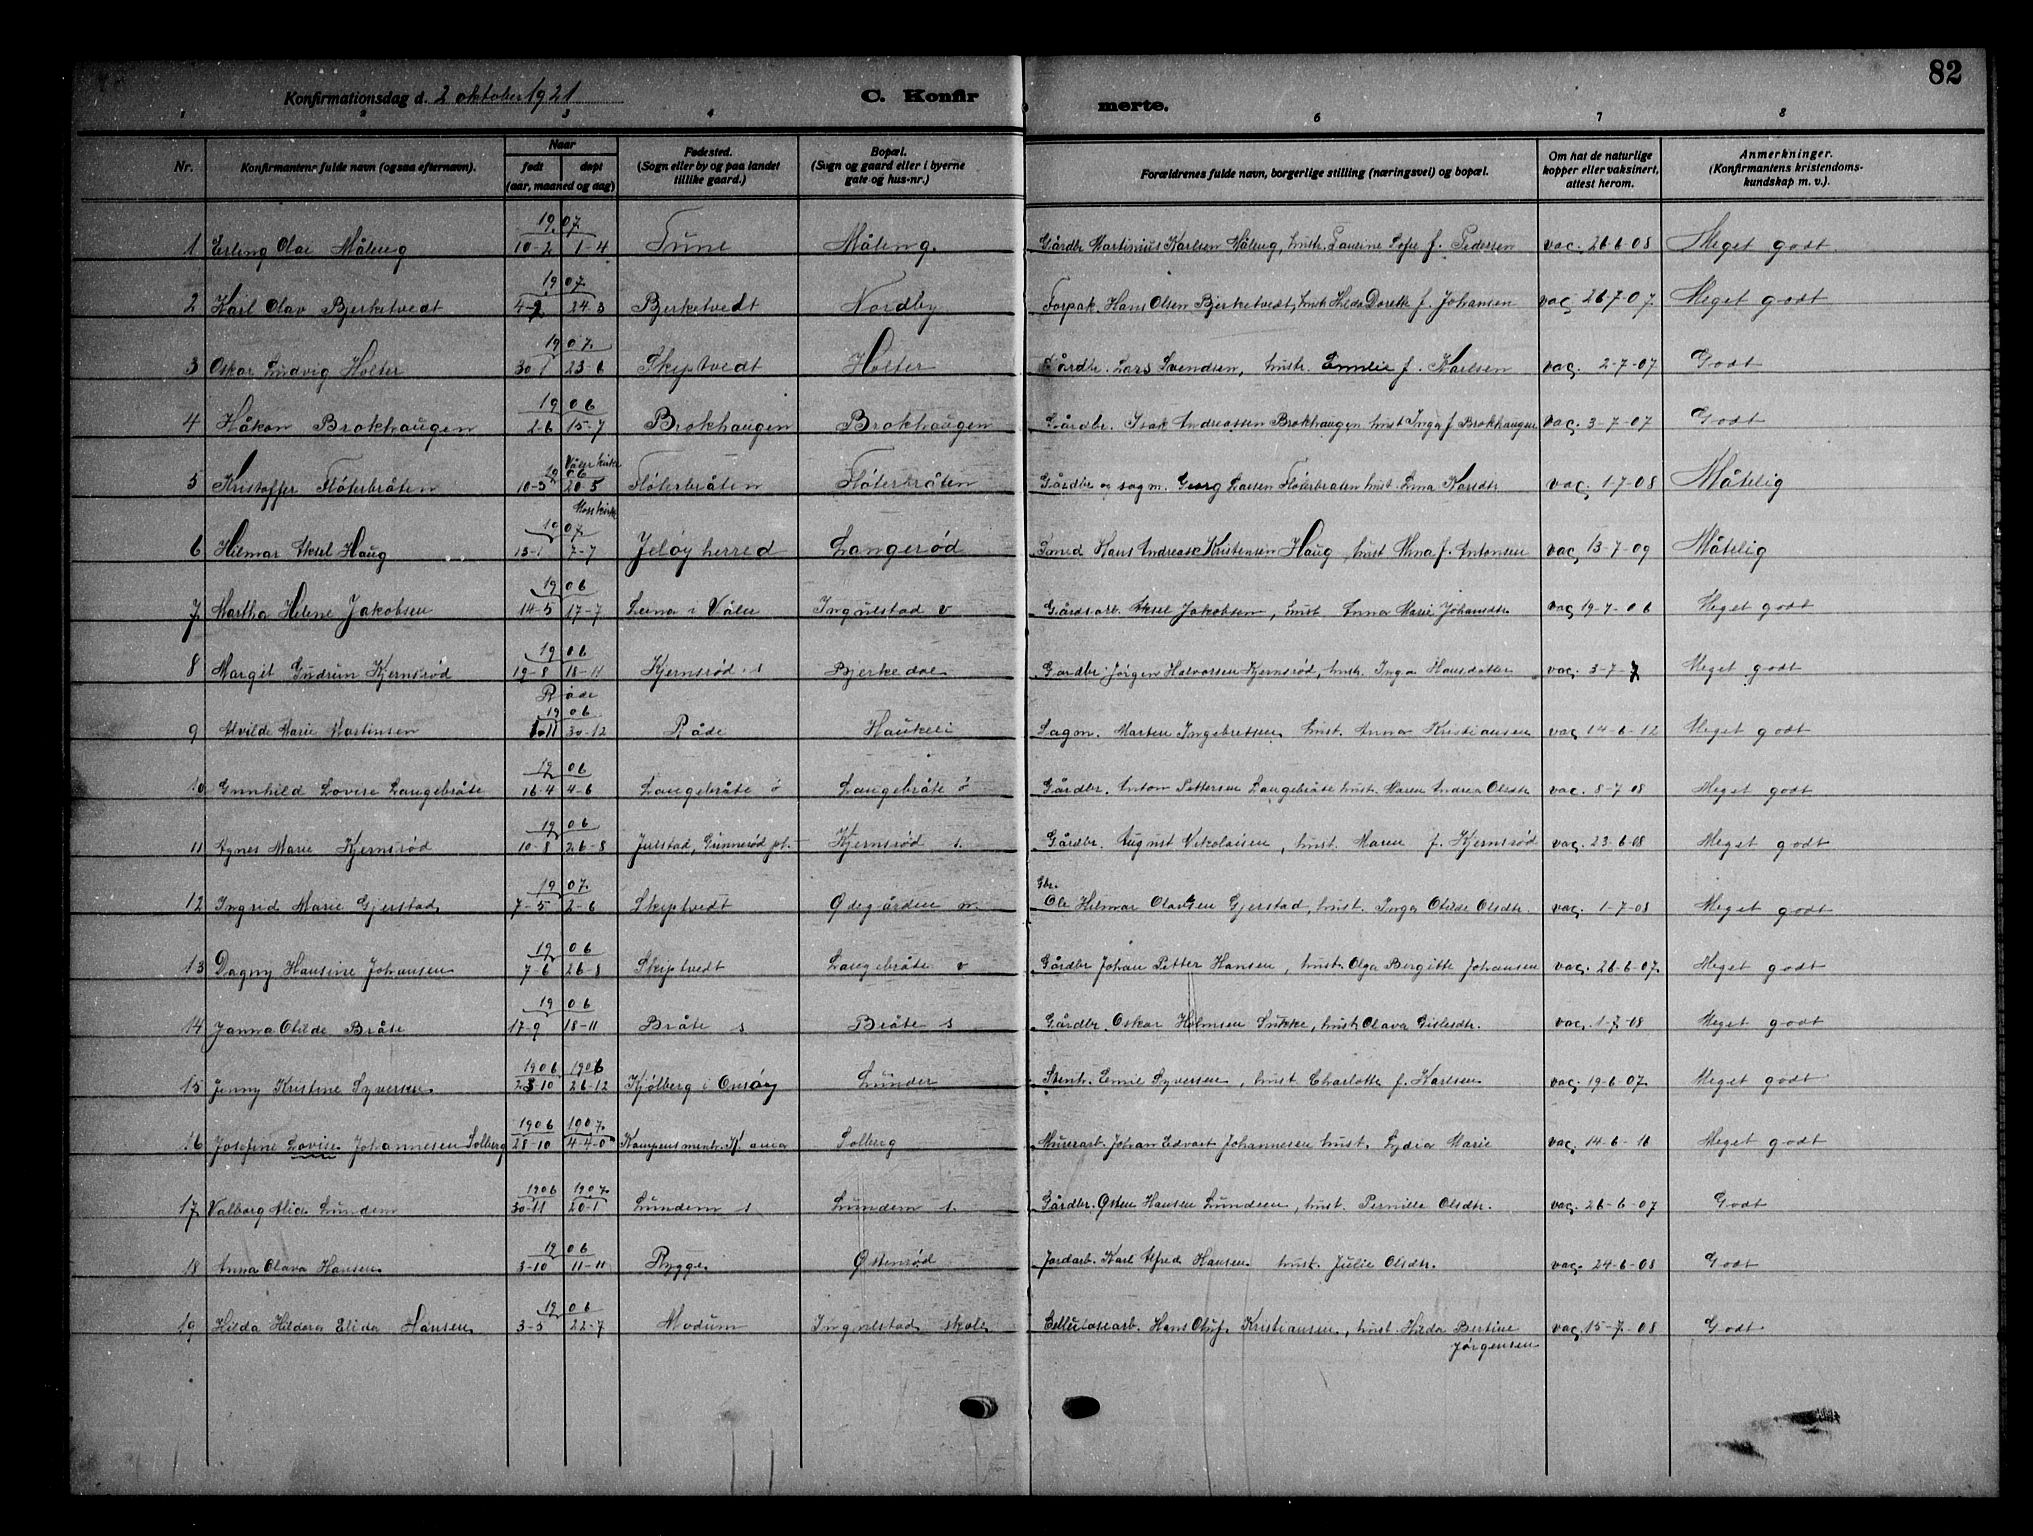 82
Konfirmationsdag d. 2 oktober 1921 C. Konfir merte.
1 2 3 4 6 7 8
Nr. Konfirmantens fulde navn (ogsaa efternavn). Naar født døpt (aar, maaned og dag) Fødested. (Sogn eller by og paa landet tillike gaard.) Bopæl. (Sogn og gaard eller i byerne gate og hus-nr.) Forældrenes fulde navn, borgerlige stilling (næringsvei) og bopæl. Om hat de naturlige kopper eller vaksinert, attest herom. Anmerkninger. (Konfirmantens kristendomskundskap m. v.).
1907
1 Erling Olai Måleng 10-2 1-4 Tune Måleng. Gårdbr Martinius Karlsen Måleng, hustr. Laurine Sofie f. Pedersen vac. 26-6-08 Meget godt.
1907
2 Karl Olav Bjerketvedt 4-2 24-3 Bjerketvedt Nordby Forpak. Hans Olsen Bjerketvedt, hust Hilda Dorette f. Johansen vac. 26-7-07 Meget godt
1907.
3 Oskar Ludvig Holter 30-1 23-6 Skiptvedt Holter Gårdbr. Lars Svendsen, hustr. Emelie f. Karlsen vac. 2-7-07 Godt
1906
4 Håkon Brokhaugen 2-6 15-7 Brokhaugen Brokhaugen Gårdbr. Isak Andreassen Brokhaugen hust Inga f Brokhaugen vac. 3-7-07 Godt
Våler kirke
1906
5 Kristoffer Fløterbråten 10-3 20-5 Fløterbråten Fløterbråten Gårdbr og sagm. Georg Larsen Fløterbråten hust. Lina Karldtr vac. 1-7-08 Måtelig
Moss kirke
1907.
6 Hilmar Aksel Haug 13-1 7-7 Jeløy herred Langerød Smed Hans Andreas Kristensen Haug, hust Anna f. Antonsen vac. 13-7-09 Måtelig
1906
7 Martha Helene Jakobsen 14-5 17-7 Lena i Våler Ingulstad v Gårdsarb. Aksel Jakobsen, hust Anna Marie Johansdtr vac 19-7-06 Meget godt
1906
8 Margit Gudrun Kjernsrød 19-8 18-11 Kjernsrød s Bjerkedal Gårdbr Jørgen Halvorsen Kjernsrød, hust. Inga Hansdatter vac. 3-7-7 Meget godt
Råde
1906
9 Alvilde Marie Martinsen 1-11 30-12 Råde Haukeli Sagm. Marten Ingebretsen hust. Anna Kristiansen vac 14-6-12 Meget godt
1906
10 Gunhild Lovise Langebråte 16-4 4-6 Langebråte ø Langebråte ø Gårdbr. Anton Pettersen Langebråte hust. Maren Andrea Olsdtr vac. 8-7-08 Meget godt
1906
11 Agnes Marie Kjernsrød 10-8 26-8 Julstad, Gunnerød pl. Kjernsrød s. Gårdbr. August Nikolaisen, hust. Maren f. Kjernsrød vac. 23-6-08 Meget godt
1907.
12 Ingrid Marie Gjerstad 7-5 2-6 Skiptvedt Ødegården n. Gbr. Ole Hilmar Olavsen Gjerstad, hust. Inga Otilde Olsdtr. vac. 1-7-08 Meget godt
1906
13 Dagny Hansine Johansen 7-6 26-8 Skiptvedt Langebråte v Gårdbr Johan Petter Hansen, hust. Olga Birgitte Johansen vac. 26-6-07. Meget godt
1906
14 Janna Otilde Bråte 17-9 18-11 Bråte s Bråte s Gårdbr. Oskar Holmsen Sukke, hust. Olava Gislesdtr. vac. 1-7-08 Meget godt
1906 1906
15 Jenny Kristine Syversen 23-10 26-12 Kjølberg i Onsøy Lunder Stenh. Emil Syversen, hust. Charlotte f. Karlsen vac. 19-6-07. Meget godt
1906 1907.
16 Josefine Lovise Johannesen Solberg 28-10 4-4-0 Kampens menh. Kr.ania Solberg Murerarb. Johan Edvart Johannesen hust. Lydia Marie vac. 14-6-16 Meget godt
1906 1907.
17 Valborg Alice Lundem 30-11 20-1 Lundem s Lundem s. Gårdbr. Østen Hansen Lundeen, hust. Pernille Olsdtr. vac. 26-6-07 Godt
1906
18 Anna Olava Hansen 3-10 11-11 Rygge Østenrød Jordarb. Karl Alfred Hansen hust. Julie Olsdtr. vac. 24-6-08 Godt
1906
19 Hilda Hildora Elida Hansen 3-5 22-7 Modum Ingulstad skole Cellulosearb. Hans Oluf Kristiansen, hust. Hilda Bertine Jørgensen vac. 15-7-08 Godt